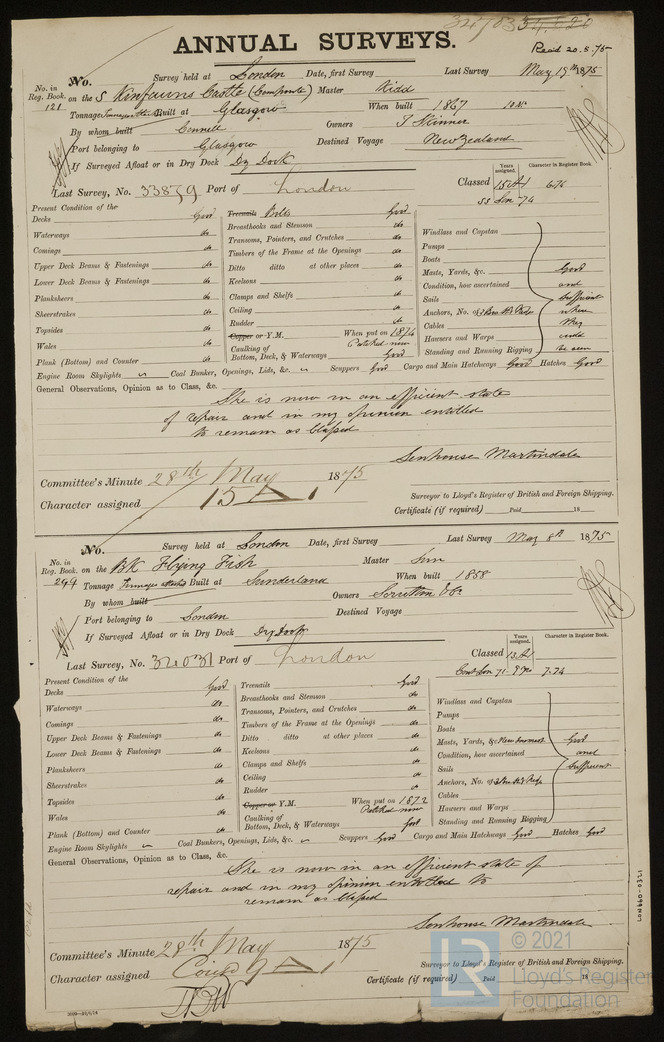 ANNUAL SURVEYS.
Rec'd 20.5.75
No. Survey held at London Date, first Survey Last Survey May 19th 1875
No. in Reg. Book. 121 on the S Kinfauns Castle (Composite) Master Kidd
Tonnage Built at Glasgow When built 1867
By whom built Connell Owners T Skinner
Port belonging to Glasgow Destined Voyage New Zealand
If Surveyed Afloat or in Dry Dock Dry Dock
Last Survey, No. 33859 Port of London Classed Years assigned. 15 A1 Character in Register Book. 6.76
SS Lon - 74
Present Condition of the
Decks Good
Waterways do
Comings do
Upper Deck Beams & Fastenings do
Lower Deck Beams & Fastenings do
Planksheers do
Sheerstrakes do
Topsides do
Wales do
Plank (Bottom) and Counter do
Treenails Bolts Good
Breasthooks and Stemson do
Transoms, Pointers, and Crutches do
Timbers of the Frame at the Openings do
Ditto ditto at other places do
Keelsons do
Clamps and Shelfs do
Ceiling do
Rudder do
Copper or Y.M. When put on 1874
Patched now
Caulking of Bottom, Deck, & Waterways Good
Windlass and Capstan
Pumps
Boats
Masts, Yards, &c. Good
Condition, how ascertained and
Sails sufficient
Anchors, No. of where
Cables they
Hawsers and Warps could
Standing and Running Rigging be seen
Engine Room Skylights Coal Bunker, Openings, Lids, &c. Scuppers Good Cargo and Main Hatchways Good Hatches Good
General Observations, Opinion as to Class, &c.
She is now in an efficient state
of repair and in my opinion entitled
to remain as Classed
Senhouse Martindale
Committee's Minute 28th May 1875
Character assigned 15 A 1
Surveyor to Lloyd's Register of British and Foreign Shipping.
Certificate (if required) Paid 18
No. Survey held at London Date, first Survey Last Survey May 8th 1875
No. in Reg. Book. 299 on the BK Flying Fish Master
Tonnage Built at Sunderland When built 1858
By whom built Owners Scrutton & Co
Port belonging to London Destined Voyage
If Surveyed Afloat or in Dry Dock Dry Dock
Last Survey, No. 32031 Port of London Classed Years assigned. 13 A1 Character in Register Book.
Cont Lon 71 - 9 yrs 7.74
Present Condition of the
Decks Good
Waterways do
Comings do
Upper Deck Beams & Fastenings do
Lower Deck Beams & Fastenings do
Planksheers do
Sheerstrakes do
Topsides do
Wales do
Plank (Bottom) and Counter do
Treenails Good
Breasthooks and Stemson do
Transoms, Pointers, and Crutches do
Timbers of the Frame at the Openings do
Ditto ditto at other places do
Keelsons do
Clamps and Shelfs do
Ceiling do
Rudder do
Copper or Y.M. When put on 1872
Patched now
Caulking of Bottom, Deck, & Waterways Good
Windlass and Capstan
Pumps
Boats
Masts, Yards, &c. Good
Condition, how ascertained and
Sails sufficient
Anchors, No. of
Cables
Hawsers and Warps
Standing and Running Rigging
Engine Room Skylights Coal Bunkers, Openings, Lids, &c. Scuppers Good Cargo and Main Hatchways Good Hatches Good
General Observations, Opinion as to Class, &c.
She is now in an efficient state of
repair and in my opinion entitled to
remain as Classed
Senhouse Martindale
Committee's Minute 28th May 1875
Character assigned Cont'd 9 A 1
Surveyor to Lloyd's Register of British and Foreign Shipping.
Certificate (if required) Paid 18
LON660-0321
LR © 2021
Lloyd's Register
Foundation